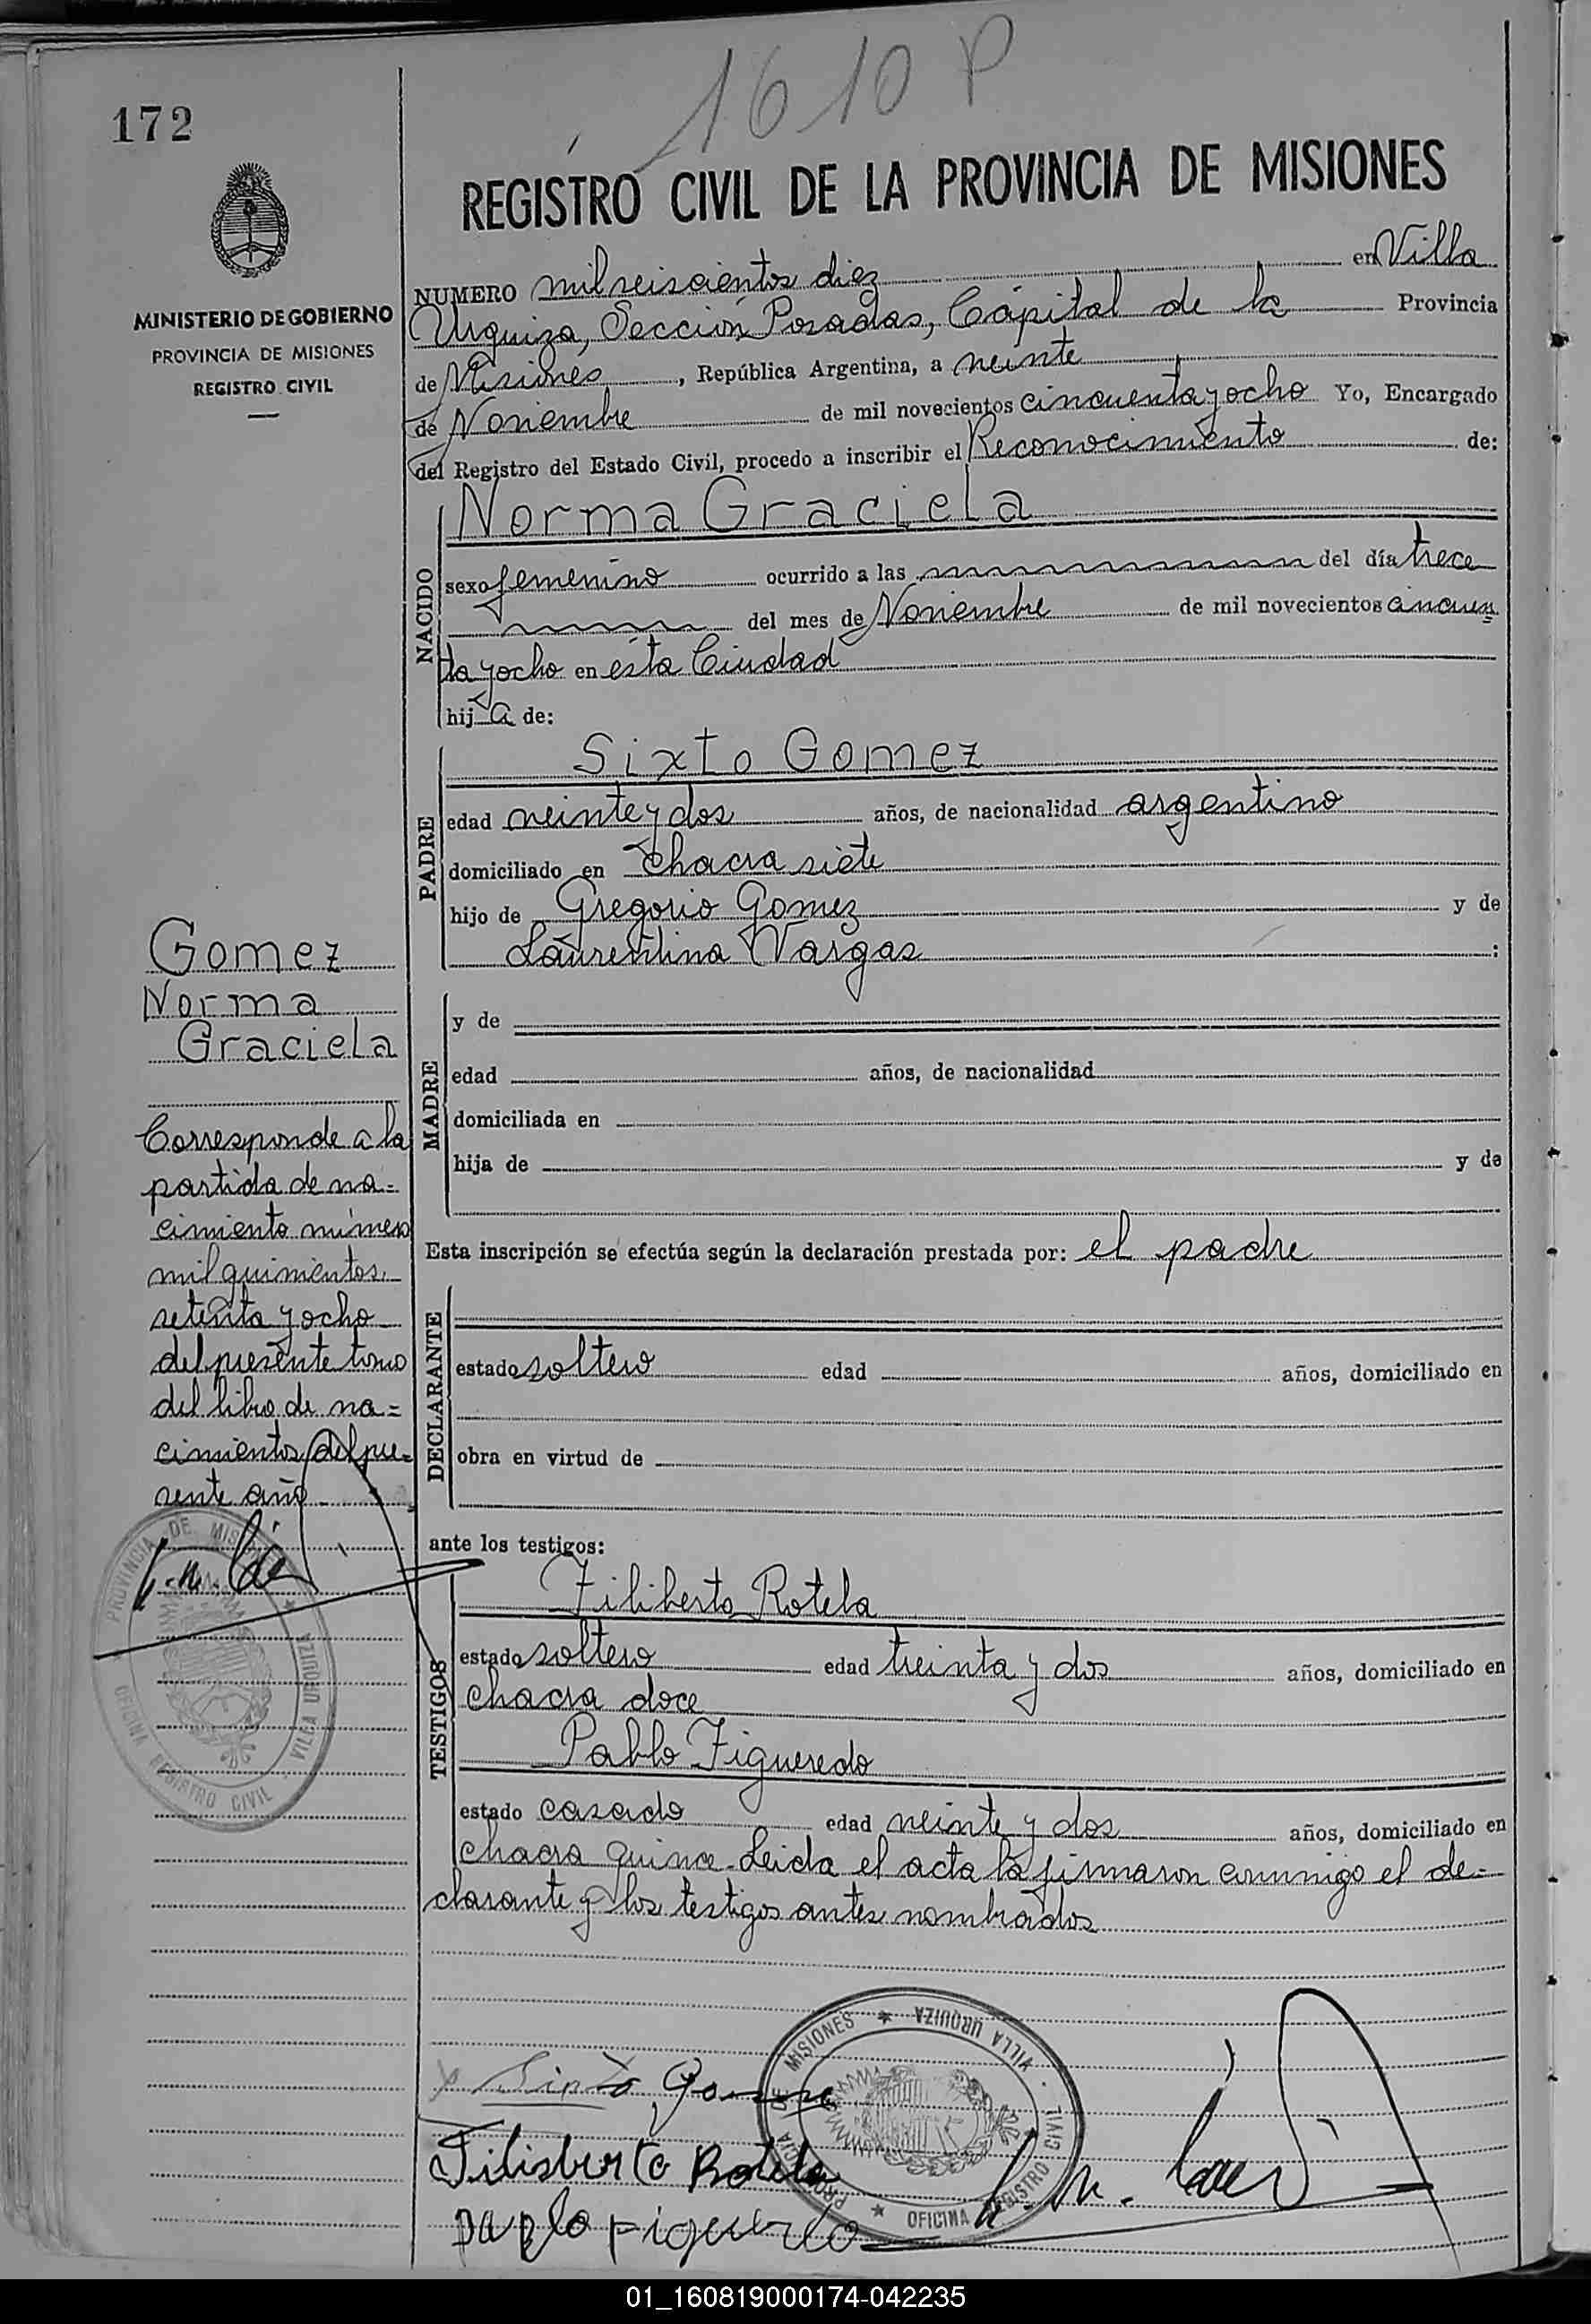 1610 P
172
REGISTRO CIVIL DE LA PROVINCIA DE MISIONES
MINISTERIO DE GOBIERNO
PROVINCIA DE MISIONES
REGISTRO CIVIL
NUMERO mil seiscientos diez en Villa
Urquiza, Sección Posadas, Cápital de la Provincia
de Misiones, República Argentina, a veinte
de Noviembre de mil novecientos cincuenta y ocho Yo, Encargado
del Registro del Estado Civil, procedo a inscribir el Reconocimiento de:
NACIDO
Norma Graciela
sexo femenino ocurrido a las del día trece
del mes de Noviembre de mil novecientos cincuen
ta y ocho en esta Ciudad
hija de:
PADRE
Sixto Gomez
edad veinte y dos años, de nacionalidad argentino
domiciliado en chacra siete
hijo de Gregorio Gomez y de
Laurentina Vargas :
MADRE
y de
edad años, de nacionalidad
domiciliada en
hija de y de
Esta inscripción se efectúa según la declaración prestada por: el padre
DECLARANTE
estado soltero edad años, domiciliado en
obra en virtud de
ante los testigos:
TESTIGOS
Filiberto Rotela
estado soltero edad treinta y dos años, domiciliado en
chacra doce
Pablo Figueredo
estado casado edad veinte y dos años, domiciliado en
chacra quince. Leida el acta la firmaron conmigo el de=
clarante y los testigos antes nombrados
Gomez
Norma
Graciela
Corresponde a la
partida de na=
cimiento número
mil quinientos
setenta y ocho
del presente tomo
del libro de na=
cimientos del pre=
sente año
PROVINCIA DE MISIONES
OFICINA REGISTRO CIVIL · VILLA URQUIZA
Sixto Gomez
Filisberto Rotela
Pablo Figueredo
PROVINCIA DE MISIONES
OFICINA REGISTRO CIVIL · VILLA URQUIZA
01_160819000174-042235